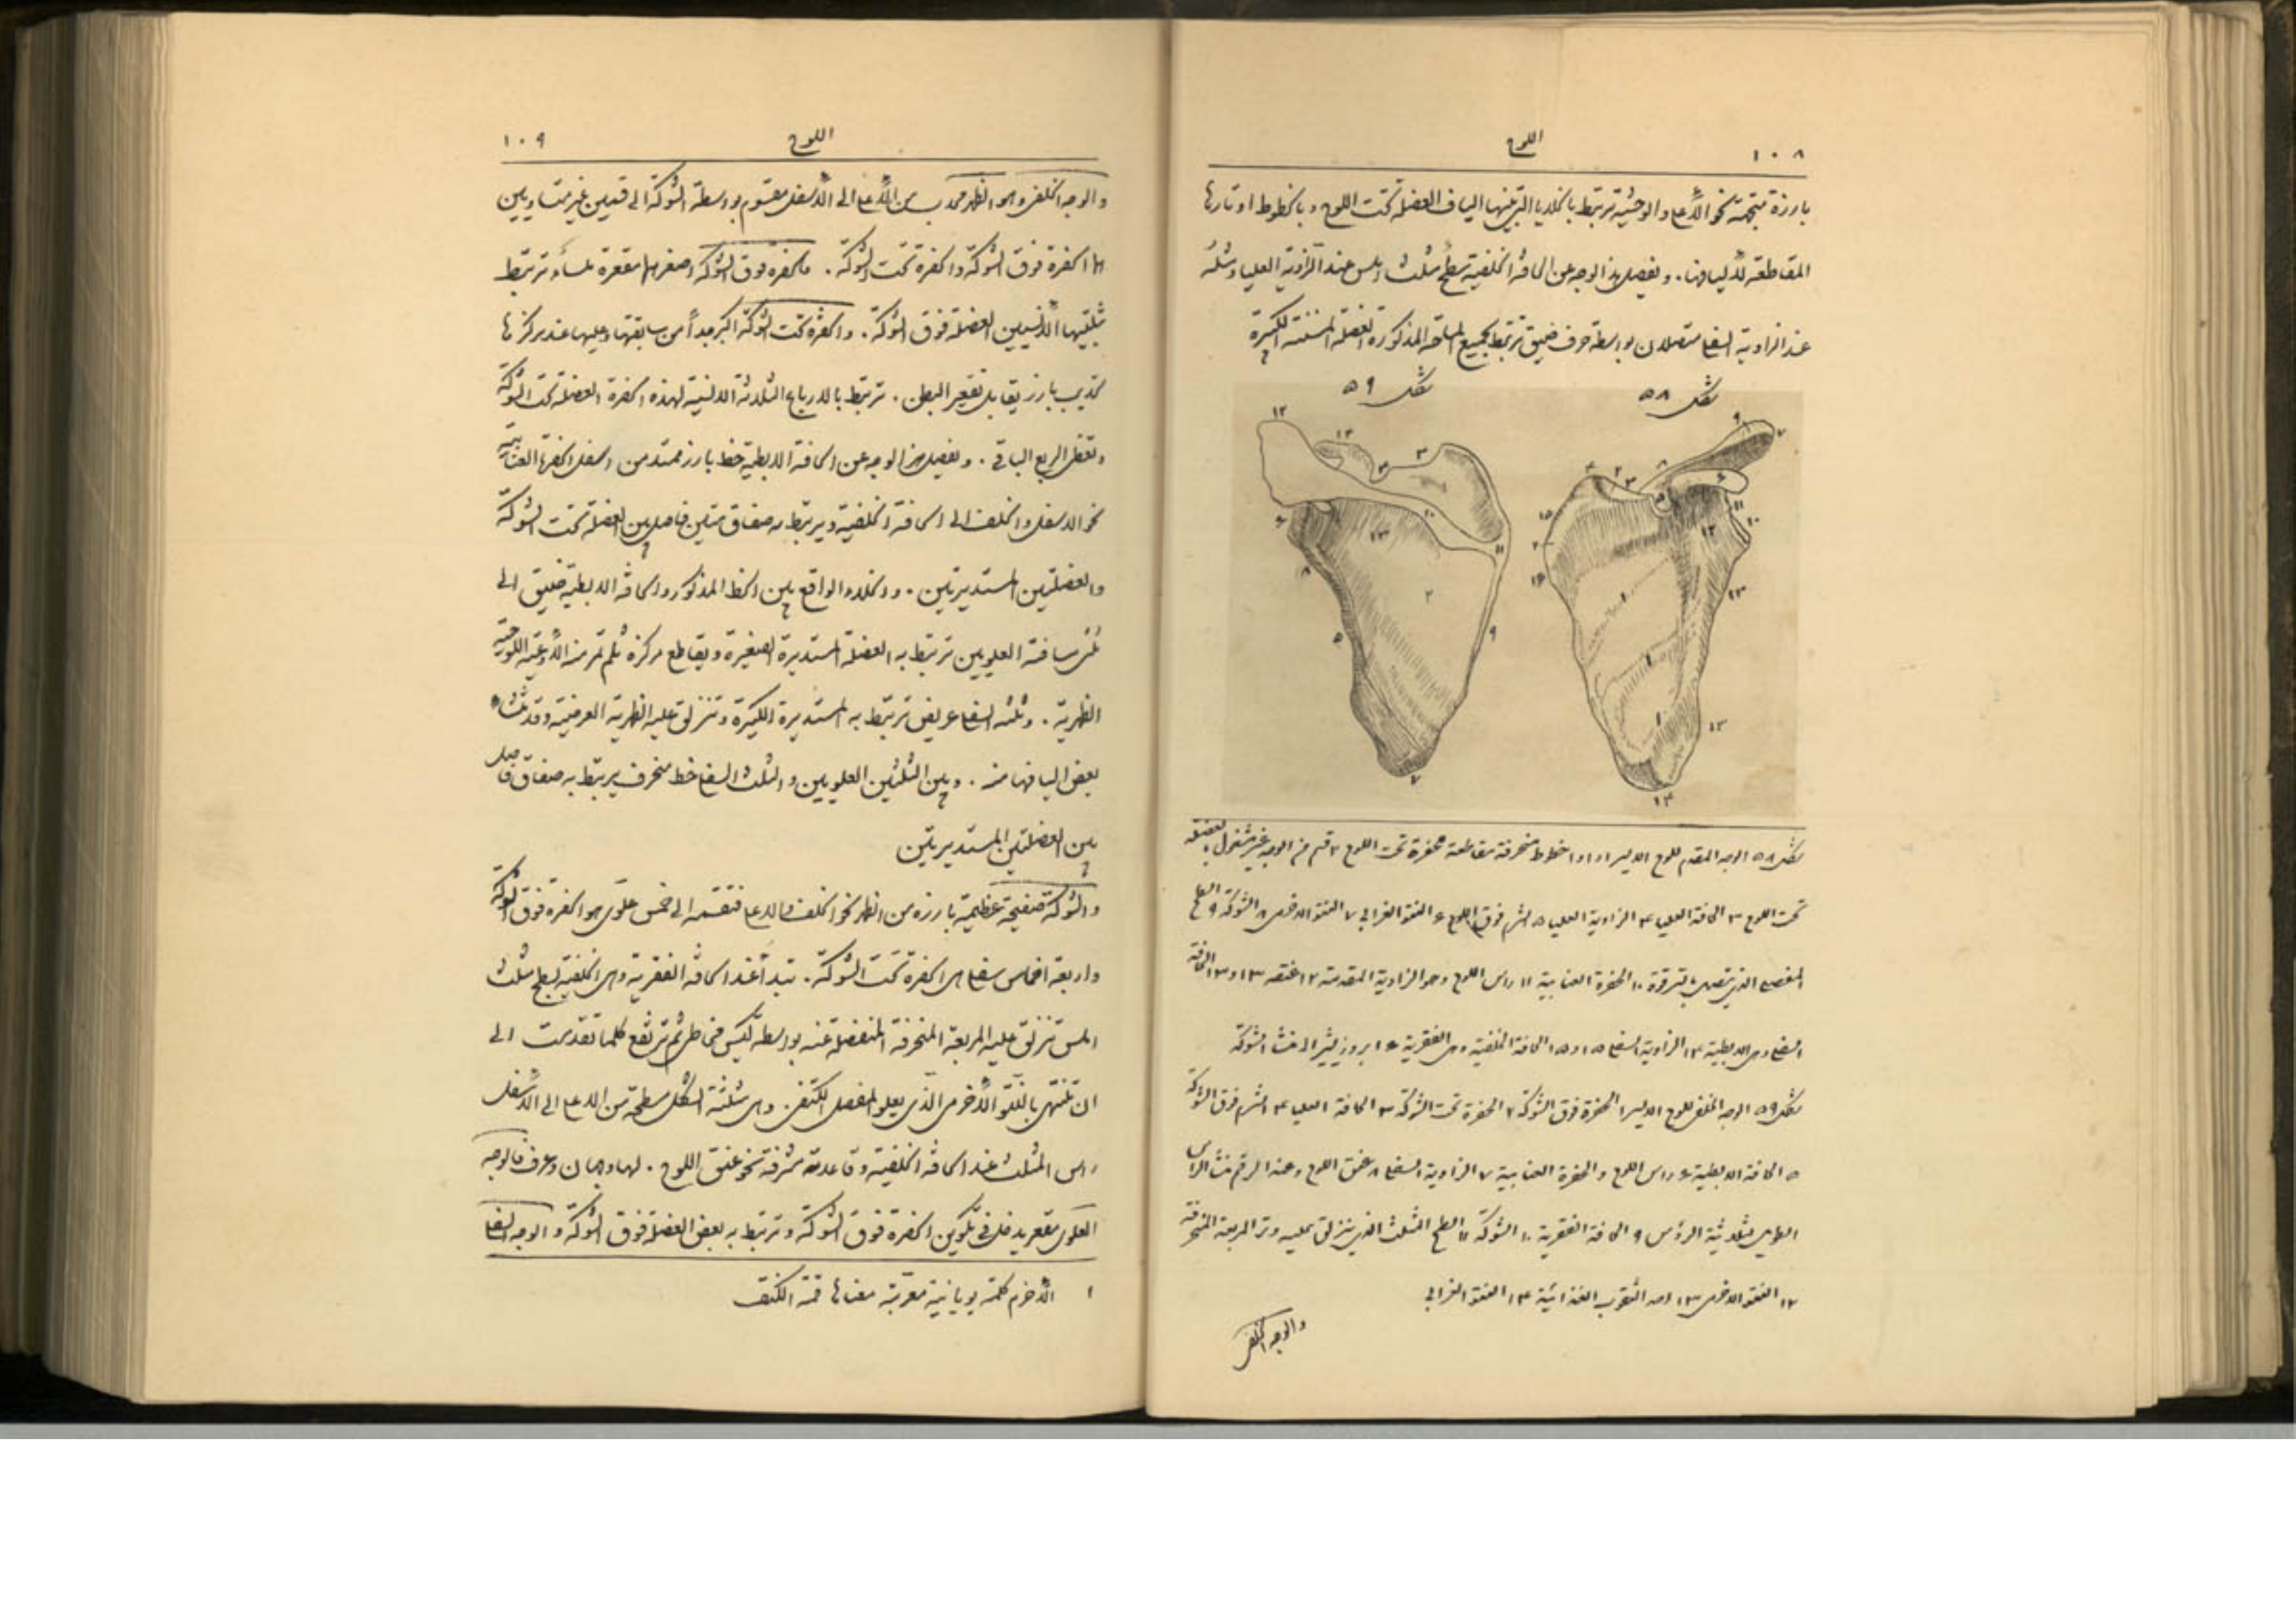 ١٠٨
اللوح
بارزة متجهة نحو الأعلى والوحشية ترتبط بالخلايا التي بينها الياف العضلة تحت اللوح وبالخطوط اوتارها
المقاطعة لأليافها . ويفصل هذا الوجه عن الحافة الخلفية سطح مثلث املس عند الزاوية العليا ومثله
عند الزاوية السفلى متصلان بواسطة حرف ضيق ترتبط بجميع المساحة المذكورة العضلة المسننة الكبيرة
شكل ٥٨
شكل ٥٩
شكل ٥٨ الوجه المقدم للوح الايسر ١ و١ و١ خطوط منحرفة مقاطعة حفرة تحت اللوح ٢ قسم من الوجه غير مشغول بعضلة
تحت اللوح ٣ الحافة العليا ٤ الزاوية العليا ٥ الشرم فوق اللوح ٦ النتو الغرابي ٧ النتو الاخرمي ٨ الشوكة ٩ السطح
المفصلي الذي يتصل بالترقوة ١٠ الحفرة العنابية ١١ راس اللوح وهو الزاوية المقدمة ١٢ عنقه ١٣ و١٣ الحافة
السفلى وهي الابطية ١٤ الزاوية السفلى ١٥ و١٥ الحافة الخلفية وهي الفقرية ١٦ بروز يشير الى منشا الشوكة
شكل ٥٩ الوجه الخلفي للوح الايسر ١ الحفرة فوق الشوكة ٢ الحفرة تحت الشوكة ٣ الحافة العليا ٤ الشرم فوق الشوكة
٥ الحافة الابطية ٦ راس اللوح والحفرة العنابية ٧ الزاوية السفلى ٨ عنق اللوح وعند الرقم منشا الراس
الطويل للثلاثية الرؤس ٩ الحافة الفقرية ١٠ الشوكة ١١ السطح المثلث الذي تنزلق عليه وتر المربعة المنحرفة
١٢ النتو الاخرمي ١٣ احد الثقوب الغذائية ١٤ النتو الغرابي
والوجه الخلفي
اللوح
١٠٩
والوجه الخلفي وهو الظهر محدب من الأعلى الى الأسفل مقسوم بواسطة الشوكة الى قسمين غير متساويين
هما الحفرة فوق الشوكة والحفرة تحت الشوكة . فالحفرة فوق الشوكة اصغرهما مقعرة ملساء ترتبط
بثلثيها الأنسيين العضلة فوق الشوكة . والحفرة تحت الشوكة اكبر جداً من سابقتها وعليها عند مركزها
تحديب بارز يقابل تقعير البطن . ترتبط بالارباع الثلاثة الانسية لهذه الحفرة العضلة تحت الشوكة
وتغطي الربع الباقي . ويفصل هذا الوجه عن الحافة الابطية خط بارز ممتد من اسفل الحفرة العنابية
نحو الاسفل والخلف الى الحافة الخلفية ويرتبط به صفاق متين فاصل بين العضلة تحت الشوكة
والعضلتين المستديرتين . والخلاء الواقع بين الخط المذكور والحافة الابطية ضيق الى
ثلثي مسافته العلويين ترتبط به العضلة المستديرة الصغيرة ويقاطع مركزه ثلم تمر منه الأوعية اللوحية
الظهرية . وثلثه السفلي عريض ترتبط به المستديرة الكبيرة وتنزلق عليه الظهرية العريضة وقد تنشاء
بعض اليافها منه . وبين الثلثين العلويين والثلث السفلي خط منحرف يرتبط به صفاق فاصل
بين العضلتين المستديرتين
والشوكة صفيحة عظمية بارزة من الظهر نحو الخلف والاعلى فتقسمه الى خمس علوي هو الحفرة فوق الشوكة
واربعة اخماس سفلى هي الحفرة تحت الشوكة . تبدأ عند الحافة الفقرية وهي الخلفية بسطح مثلث
املس تنزلق عليه المربعة المنحرفة المنفصلة عنه بواسطة كيس مخاطي ثم ترتفع كلما تقدمت الى
ان تنتهي بالنتو الأخرمي الذي يعلو المفصل الكتفي . وهي مثلثة الشكل مسطحة من الاعلى الى الأسفل
راس المثلث عند الحافة الخلفية وقاعدته مشرفة نحو عنق اللوح . لها وجهان وحرف فالوجه
العلوي مقعر يدخل في تكوين الحفرة فوق الشوكة وترتبط به بعض العضلة فوق الشوكة والوجه السفلي
١ الأخرم كلمة يونانية معرّبة معناها قمة الكتف